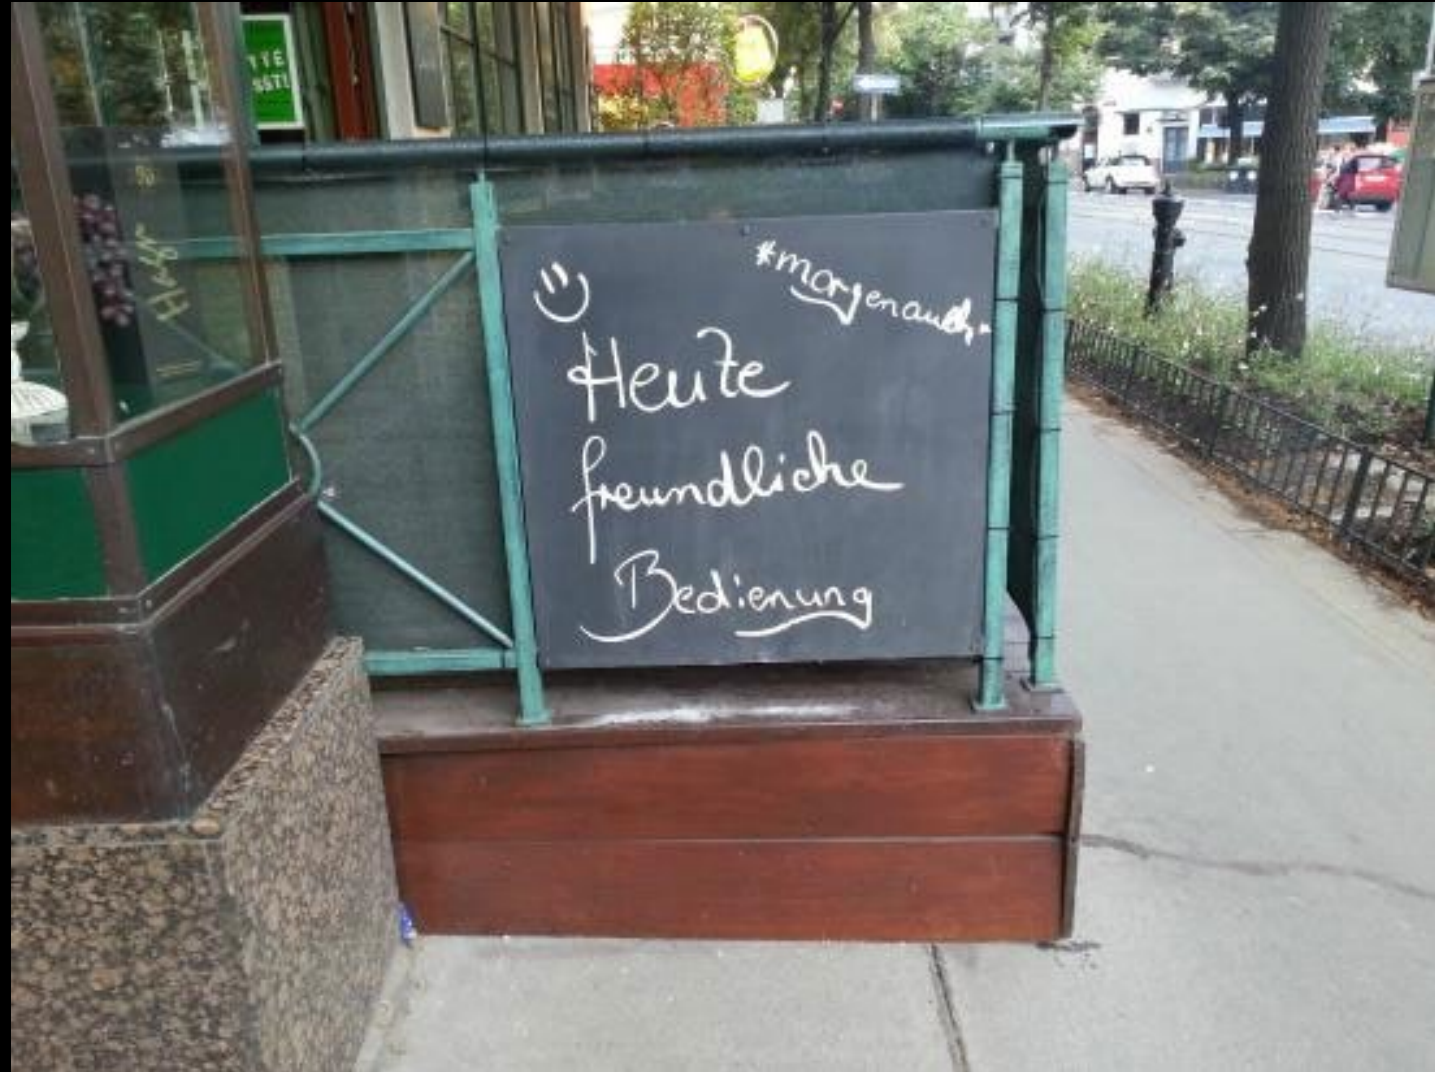 #morgenauch
Heute
freundliche
Bedienung